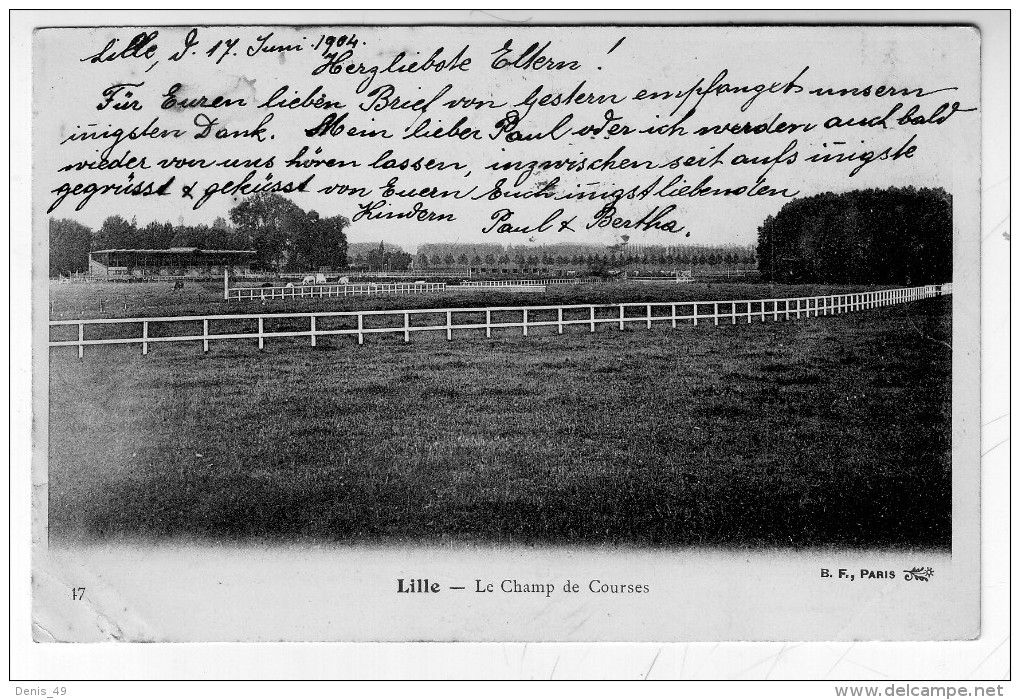 Lille, d. 17. Juni 1904.
Herzliebste Eltern!
Für Euren lieben Brief von Gestern empfanget unsern
iñigsten Dank. Mein lieber Paul oder ich werden auch bald
wieder von uns hören lassen, inzwischen seit aufs iñigste
gegrüsst & geküsst von Euern Euch iñigstliebenden
Kindern Paul & Bertha.
17
Lille — Le Champ de Courses
B. F., PARIS
Denis_49
www.delcampe.net